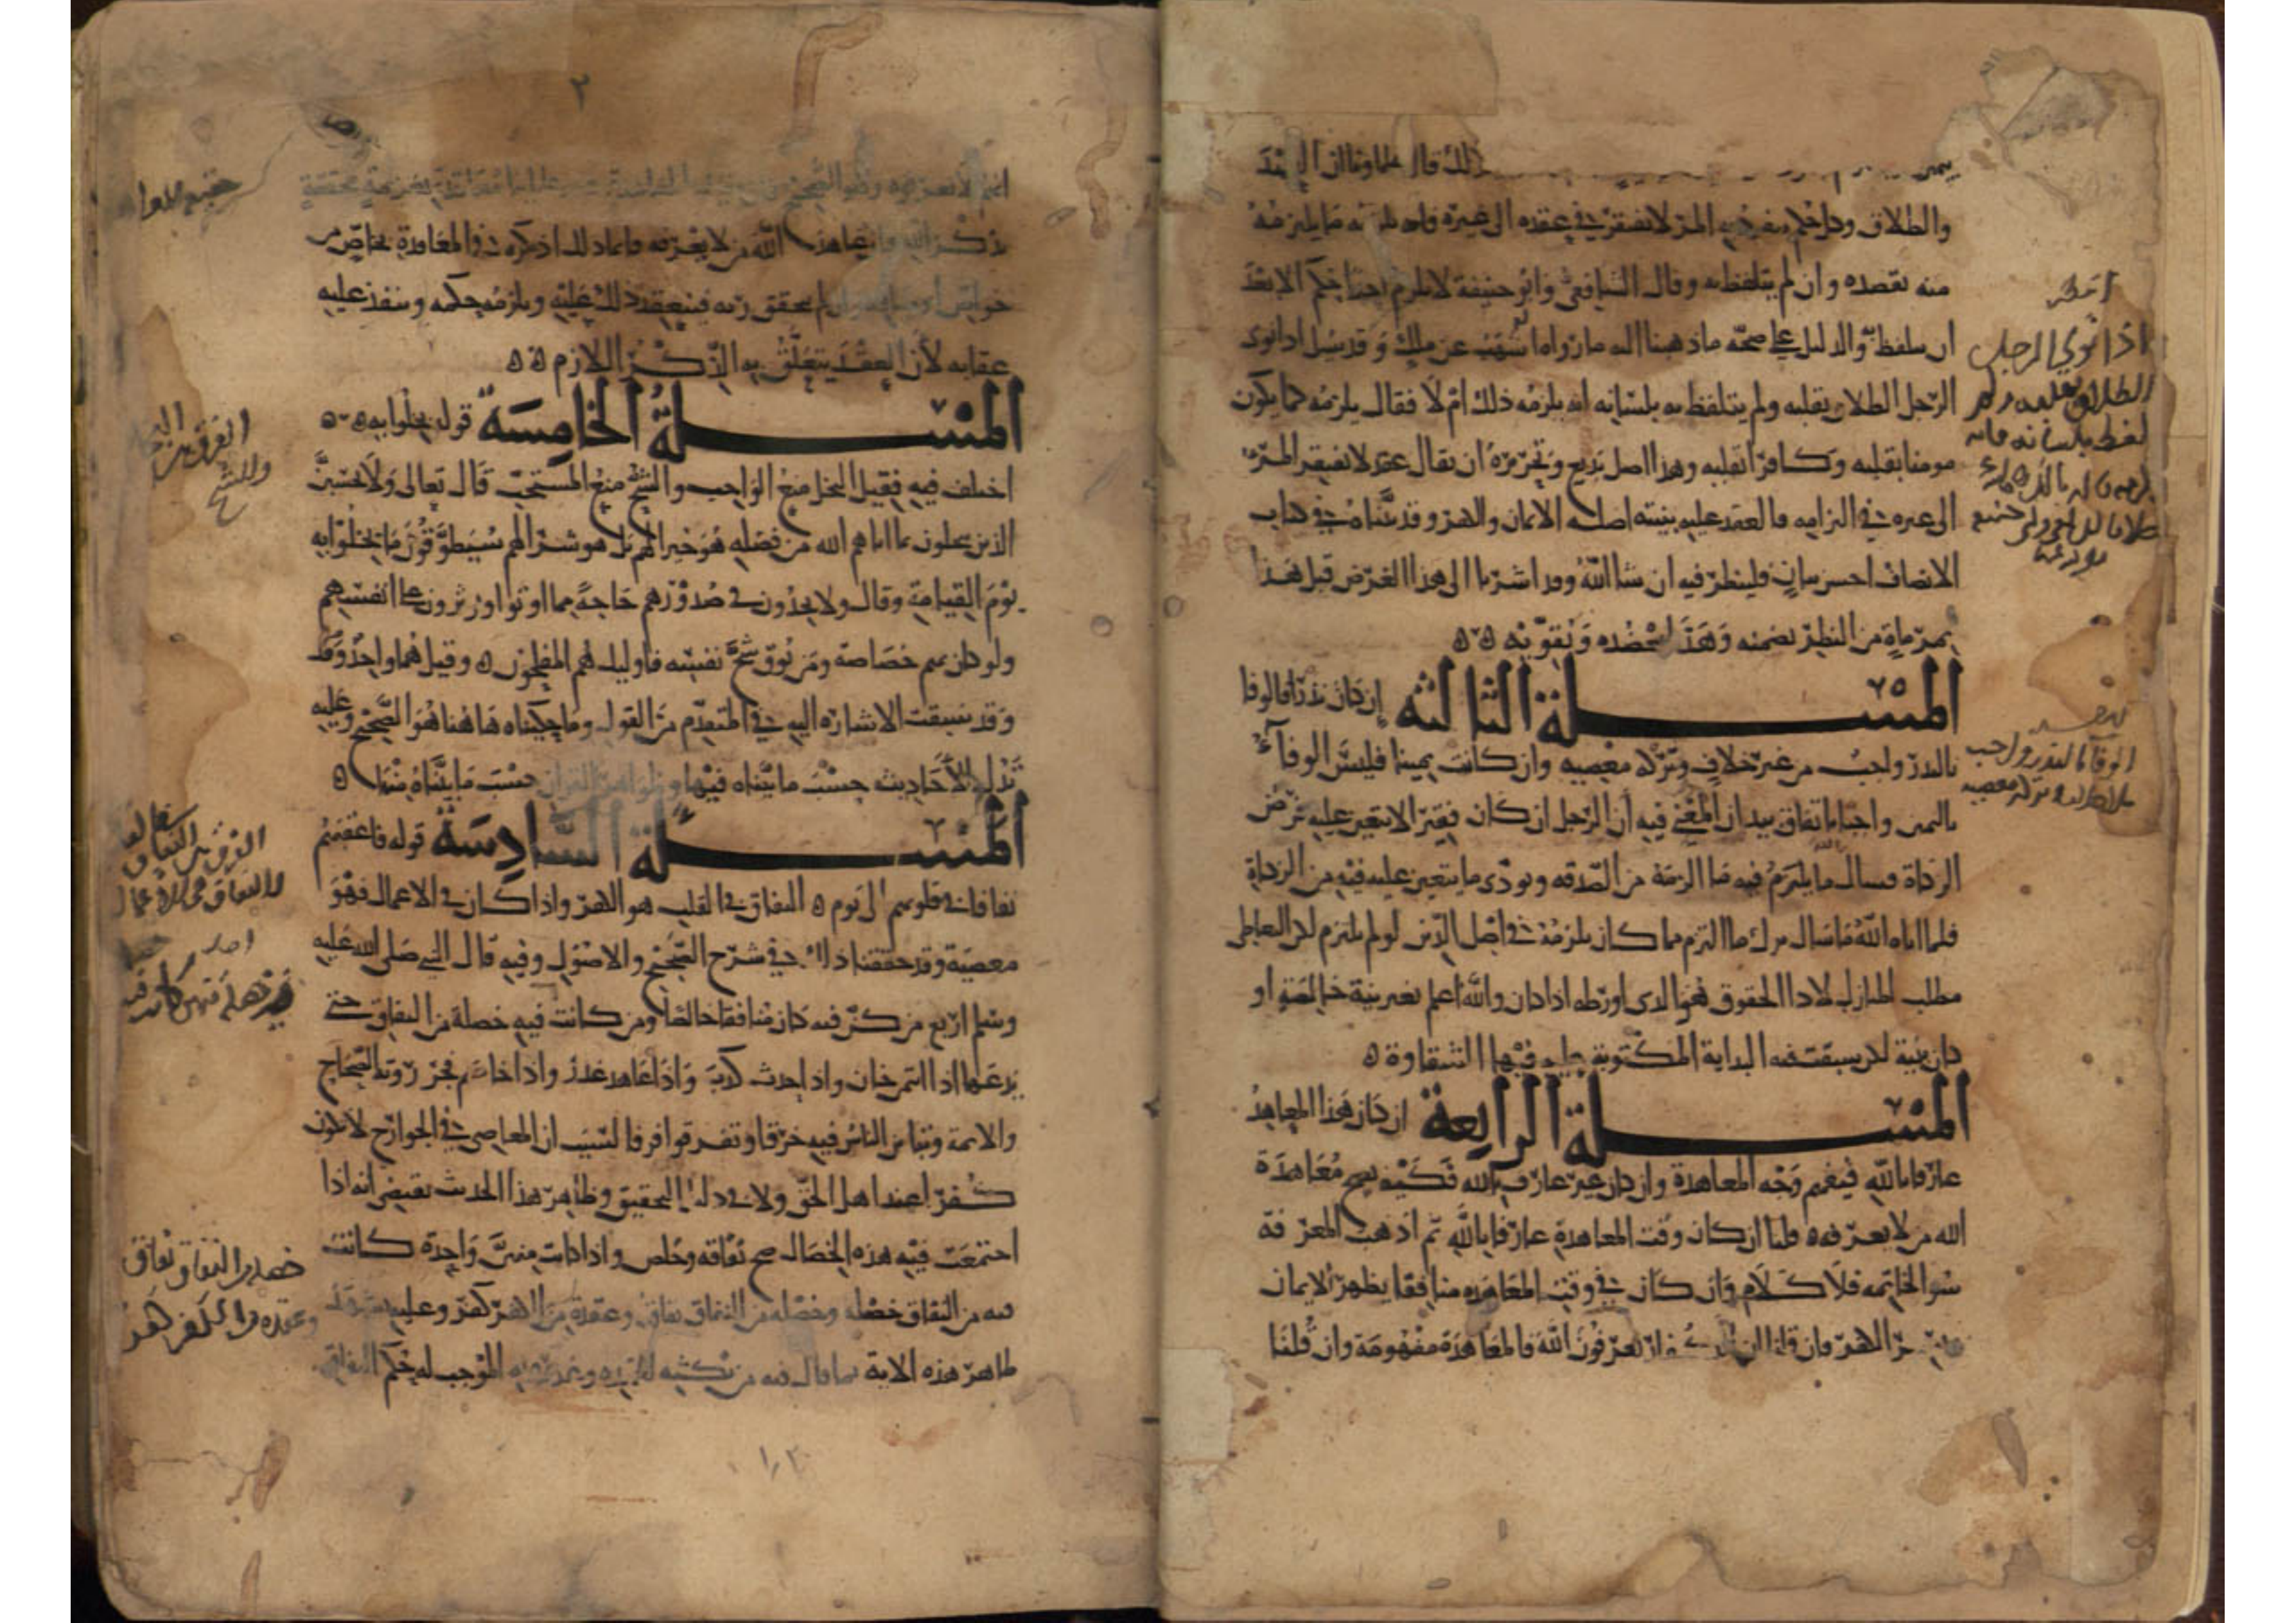 ذلك قال علماونا ان العقد
والطلاق وكل حكم ينفرد به المرء لا يفتقر في عقده الى غيره فانه يلزمه منه ما يلتزمه
منه بقصده وان لم يتلفظ به وقال الشافعي وابو حنيفة لا يلزم احدا حكم الا بعد
ان يتلفظ به والدليل على صحة ما ذهبنا اليه ما رواه اشهب عن ملك وقد سيل اذا نوى
الرجل الطلاق بقلبه ولم يتلفظ به بلسانه انه يلزمه ذلك ام لا فقال يلزمه كما يكون
مومنا بقلبه وكافرا بقلبه وهذا اصل بديع وتحريره ان يقال عقد لا يفتقر المرء
الى غيره في التزامه فانعقد عليه بنيته اصله الايمان والكفر وقد بيناه في كتاب
الانصاف احسن بيان فلينظر فيه ان شا الله وقد اشرنا الى هذا الغرض قبل هذا
بمرماة من النظر تضمنه وهذا يعضده ويقويه
المسلة الثالثة ان كان نذرا فالوفا
بالنذر واجب من غير خلاف وتركه معصيه وان كانت يمينا فليس الوفا
باليمين واجبا باتفاق بيد ان المعنى فيه ان الرجل ان كان فقيرا لا يتعين عليه فرض
الزكاة فسال ما يلتزم فيه ما الزمه من الصدقه ويودي ما يتعين عليه فيه من الزكاة
فلما اتاه الله ما سال ترك ما التزم مما كان يلزمه في اصل الدين لو لم يلتزم لكن التعاطي
بطلب المنازل لادا الحقوق هو الذي اورطه اذ كان والله اعلم بغير نية خالصة او
كان بنية لكن سبقت فيه البداية المكتوبة عليه فيها الشقاوة
المسلة الرابعة ان كان هذا المعاهد
عارفا بالله فيفهم وجه المعاهدة وان كان غير عارف بالله فكيف يصح معاهدة
الله من لا يعرفه قلنا ان كان وقت المعاهدة عارفا بالله ثم اذهب المعرفة
سوء الخاتمه فلا كلام وان كان في وقت المعاهده منافقا يظهر الايمان
ويسر الكفر فان قلنا ان الكفار يعرفون الله فالمعاهدة مفهومة وان قلنا
اذا نوى الرجل
الطلاق بقلبه ولم
يلفظ بلسانه فانه
الوفا بالنذر واجب
بلا خلاف وتركه معصيه
٢
انهم لا يعرفونه وهو الصحيح
ذكر الله او يعاهد الله من لا يعرفه فانما ذلك اذ ذكره والمعاهدة بخاص من
خواص اوصافه وان لم يتحقق ربه فينعقد ذلك عليه ويلزمه حكمه وينفذ عليه
عقابه لان العقد يتعلق به الذكر اللازم
المسلة الخامسة قوله بخلوا به
اختلف فيه فقيل البخل منع الواجب والشح منع المستحب قال تعالى ولا تحسبن
الذين يبخلون بما اتاهم الله من فضله هو خيرا لهم بل هو شر لهم سيطوقون ما بخلوا به
يوم القيامة وقال ولا يجدون في صدورهم حاجة مما اوتوا ويوثرون على انفسهم
ولو كان بهم خصاصة ومن يوق شح نفسه فاوليك هم المفلحون وقيل هما واحد
وقد سبقت الاشاره اليه في المتقدم من القول وما حكيناه هاهنا هو الصحيح وعليه
تدل الاحاديث حسب ما بيناه فيها وظواهر القران حسب ما بيناه منها
المسلة السادسة قوله فاعقبهم
نفاقا في قلوبهم الى يوم النفاق في القلب هو الكفر واذا كان في الاعمال فهو
معصية وقد حققنا ذلك في شرح الصحيح والاصول وفيه قال النبي صلى الله عليه
وسلم اربع من كن فيه كان منافقا خالصا ومن كانت فيه خصلة من النفاق حتى
يدعها اذا ايتمن خان واذا حدث كذب واذا عاهد غدر واذا خاصم فجر روته الصحاح
والايمة وتباين الناس فيه حزقا وتفرقوا فرقا لسبب ان المعاصي في الجوارح لا تكون
كفرا عند اهل الحق ولا في دليل التحقيق وظاهر هذا الحديث يقتضي انه اذا
اجتمعت فيه هذه الخصال صح نفاقه وخلص واذا كانت منهن واحدة كانت
فيه من النفاق خصلة وخصله من النفاق نفاق وعقدة من الكفر كفر وعليه
ظاهر هذه الاية بما قال فيه من نكثه لعهده وغدره الموجب له حكم النفاق
خصلة من النفاق نفاق
وعقده من الكفر كفر